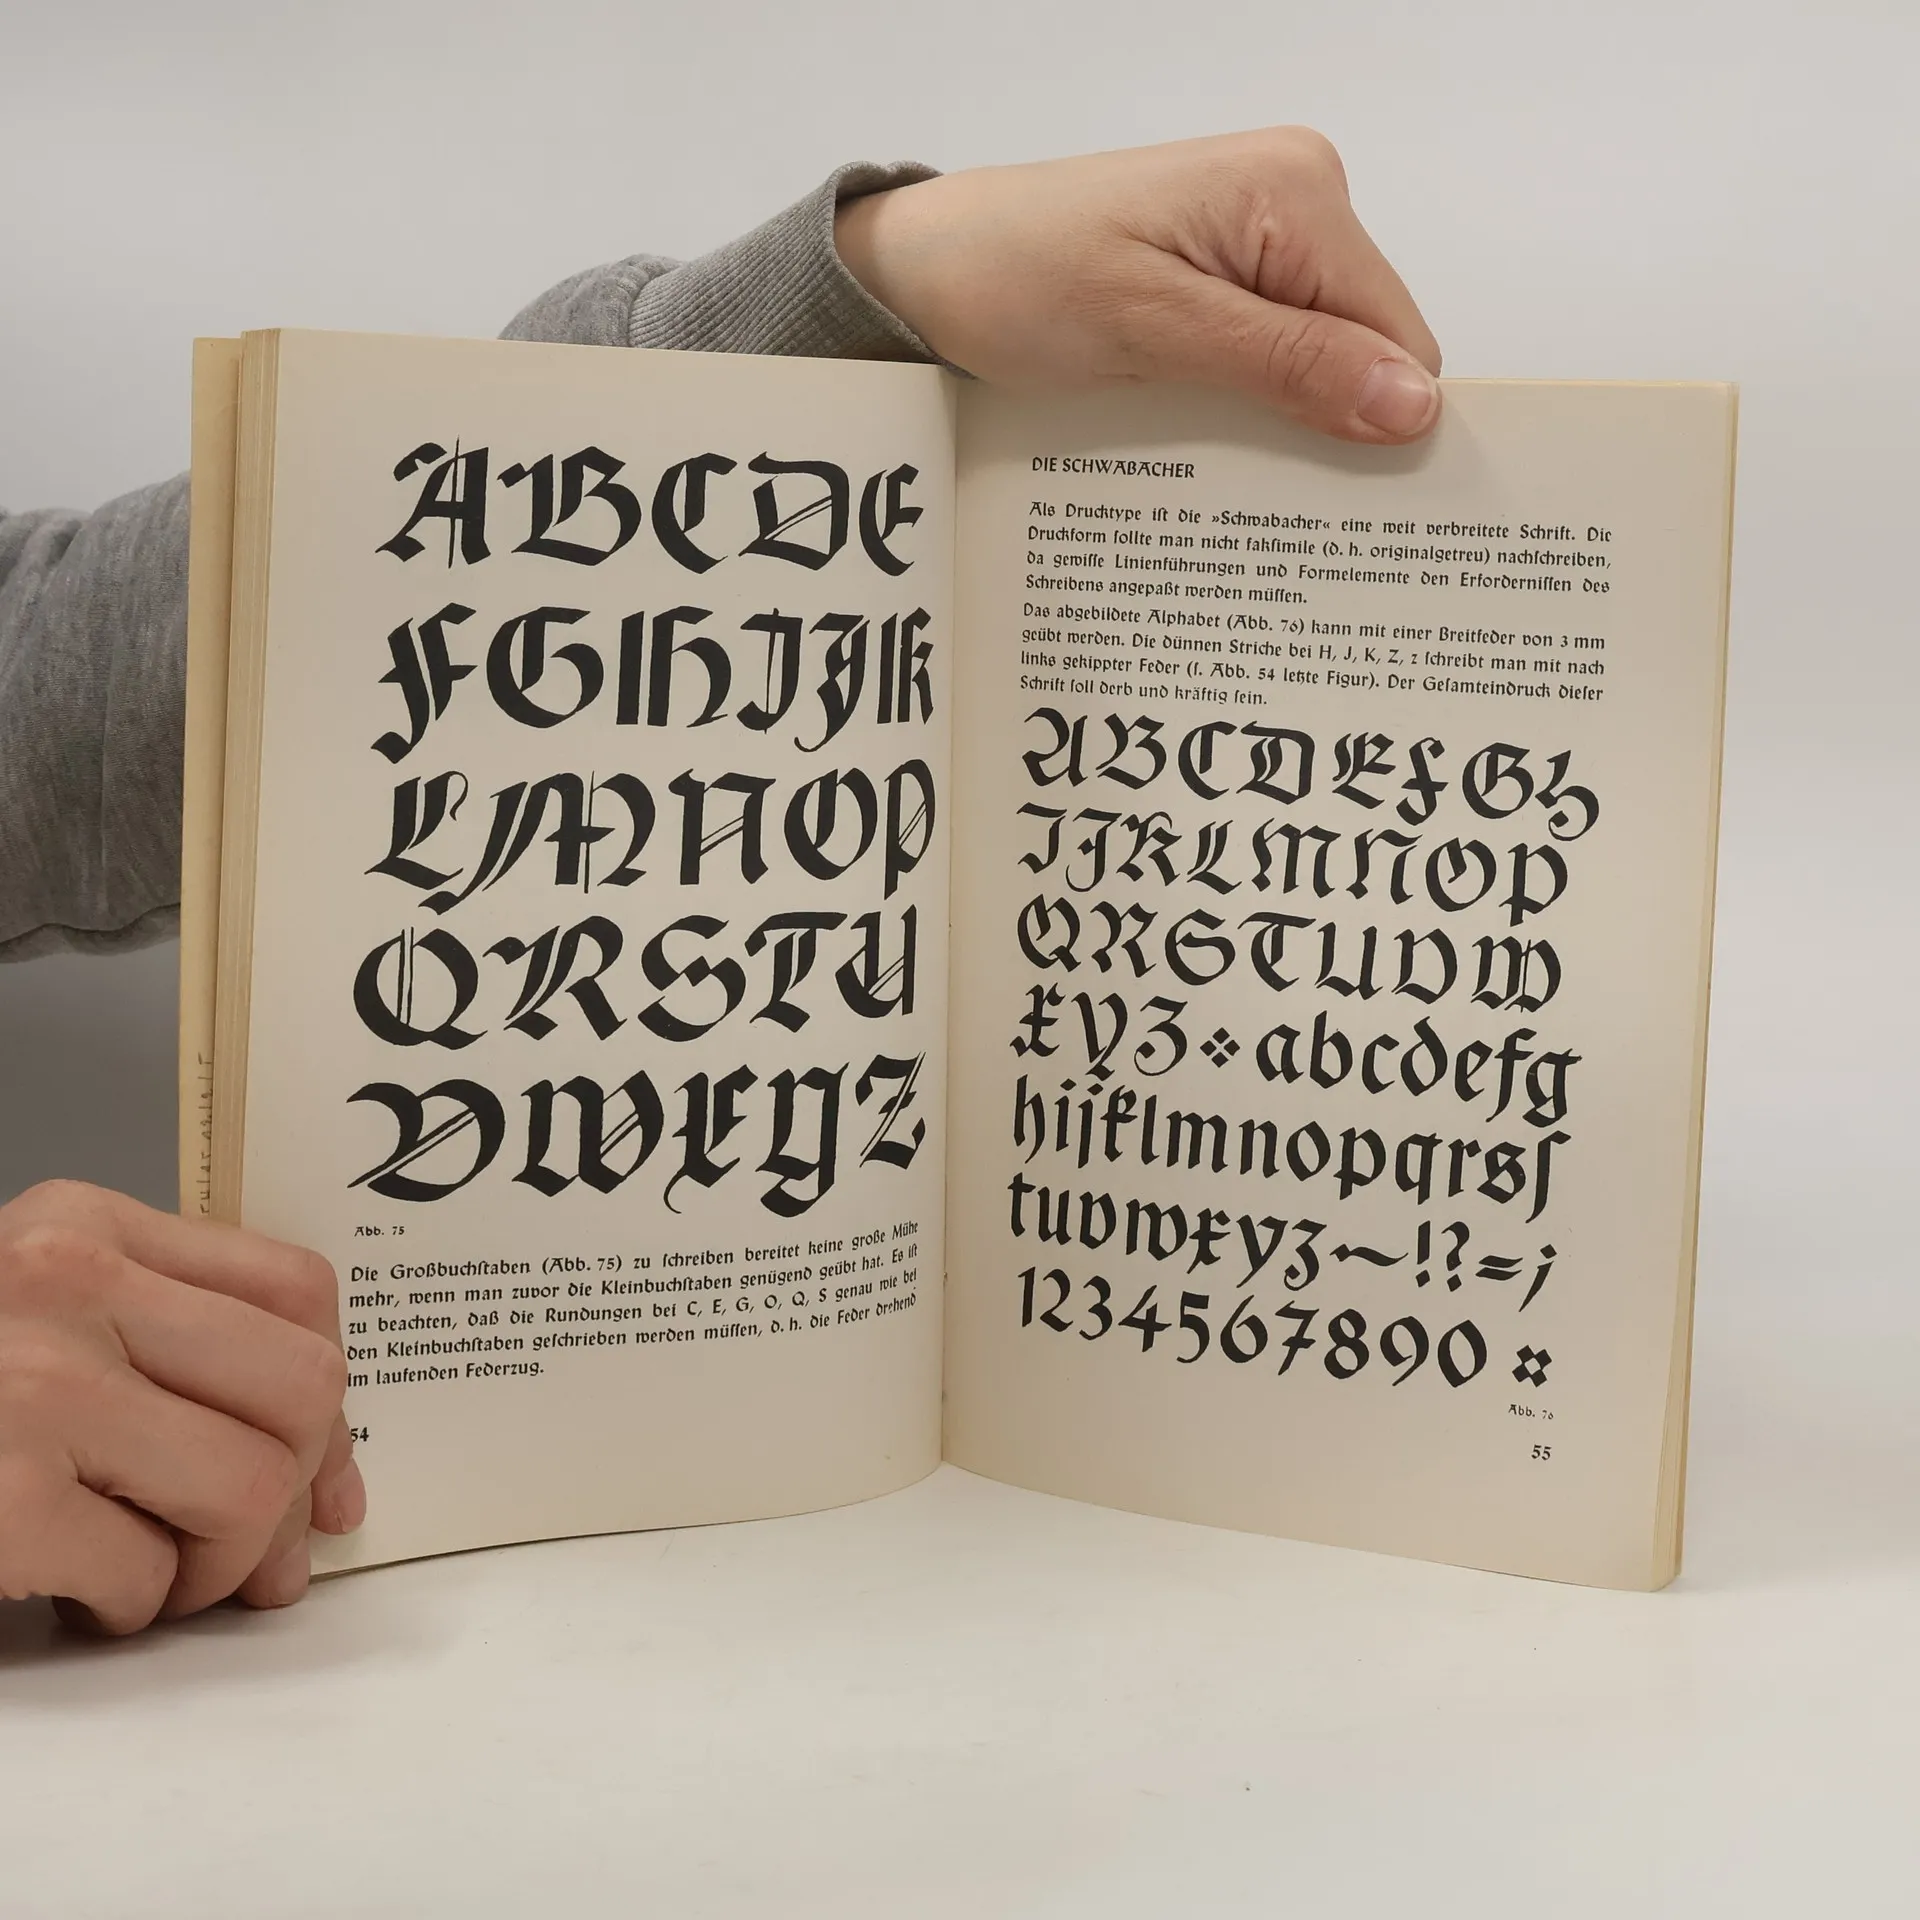 ABCDE
FGHIJK
LMNOP
QRSTU
VWXYZ
Abb. 75
Die Großbuchſtaben (Abb. 75) zu ſchreiben bereitet keine große Mühe
mehr, wenn man zuvor die Kleinbuchſtaben genügend geübt hat. Es iſt
zu beachten, daß die Rundungen bei C, E, G, O, Q, S genau wie bei
den Kleinbuchſtaben geſchrieben werden müſſen, d. h. die Feder drehend
im laufenden Federzug.
54
DIE SCHWABACHER
Als Drucktype iſt die »Schwabacher« eine weit verbreitete Schrift. Die
Druckform ſollte man nicht fakſimile (d. h. originalgetreu) nachſchreiben,
da gewiſſe Linienführungen und Formelemente den Erforderniſſen des
Schreibens angepaßt werden müſſen.
Das abgebildete Alphabet (Abb. 76) kann mit einer Breitfeder von 3 mm
geübt werden. Die dünnen Striche bei H, J, K, Z, z ſchreibt man mit nach
links gekippter Feder (ſ. Abb. 54 letzte Figur). Der Geſamteindruck dieſer
Schrift ſoll derb und kräftig ſein.
ABCDEFGH
IJKLMNOP
QRSTUVW
XYZ abcdefg
hijklmnopqrsſ
tuvwxyz~!?=;
1234567890
Abb. 76
55